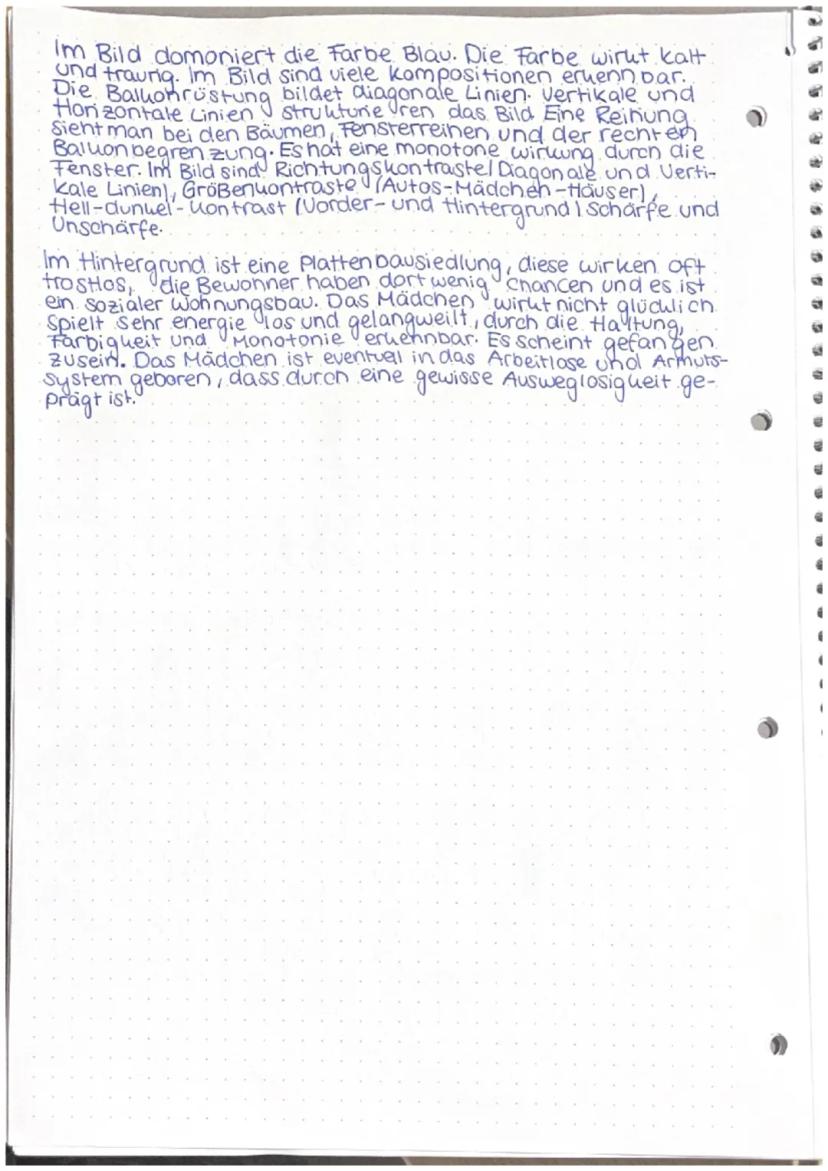 Im Bild domoniert die Farbe Blau. Die Farbe wirkt kalt
und traurig. Im Bild sind viele Kompositionen erkennbar.
Die Balkonrüstung bildet diagonale Linien. Vertikale und
Horizontale Linien strukturieren das Bild Eine Reihung
sieht man bei den Bäumen, Fensterreihen und der rechten
Balkonbegrenzung. Es hat eine monotone wirkung durch die
Fenster. Im Bild sind Richtungskontraste (Diagonale und Verti-
kale Linien), Größenkontraste (Autos-Mädchen-Häuser),
Hell-dunkel-Kontrast (Vorder- und Hintergrund) Schärfe und
Unschärfe.
Im Hintergrund ist eine Plattenbausiedlung, diese wirken oft
trostlos, die Bewohner haben dort wenig Chancen und es ist
ein sozialer Wohnungsbau. Das Mädchen wirkt nicht glücklich
spielt sehr energielos und gelangweilt, durch die Haltung,
Farbigkeit und Monotonie erkennbar. Es scheint gefangen
zusein. Das Mädchen ist eventuel in das Arbeitlose und Armuts-
system geboren, dass durch eine gewisse Ausweglosigkeit ge-
prägt ist.